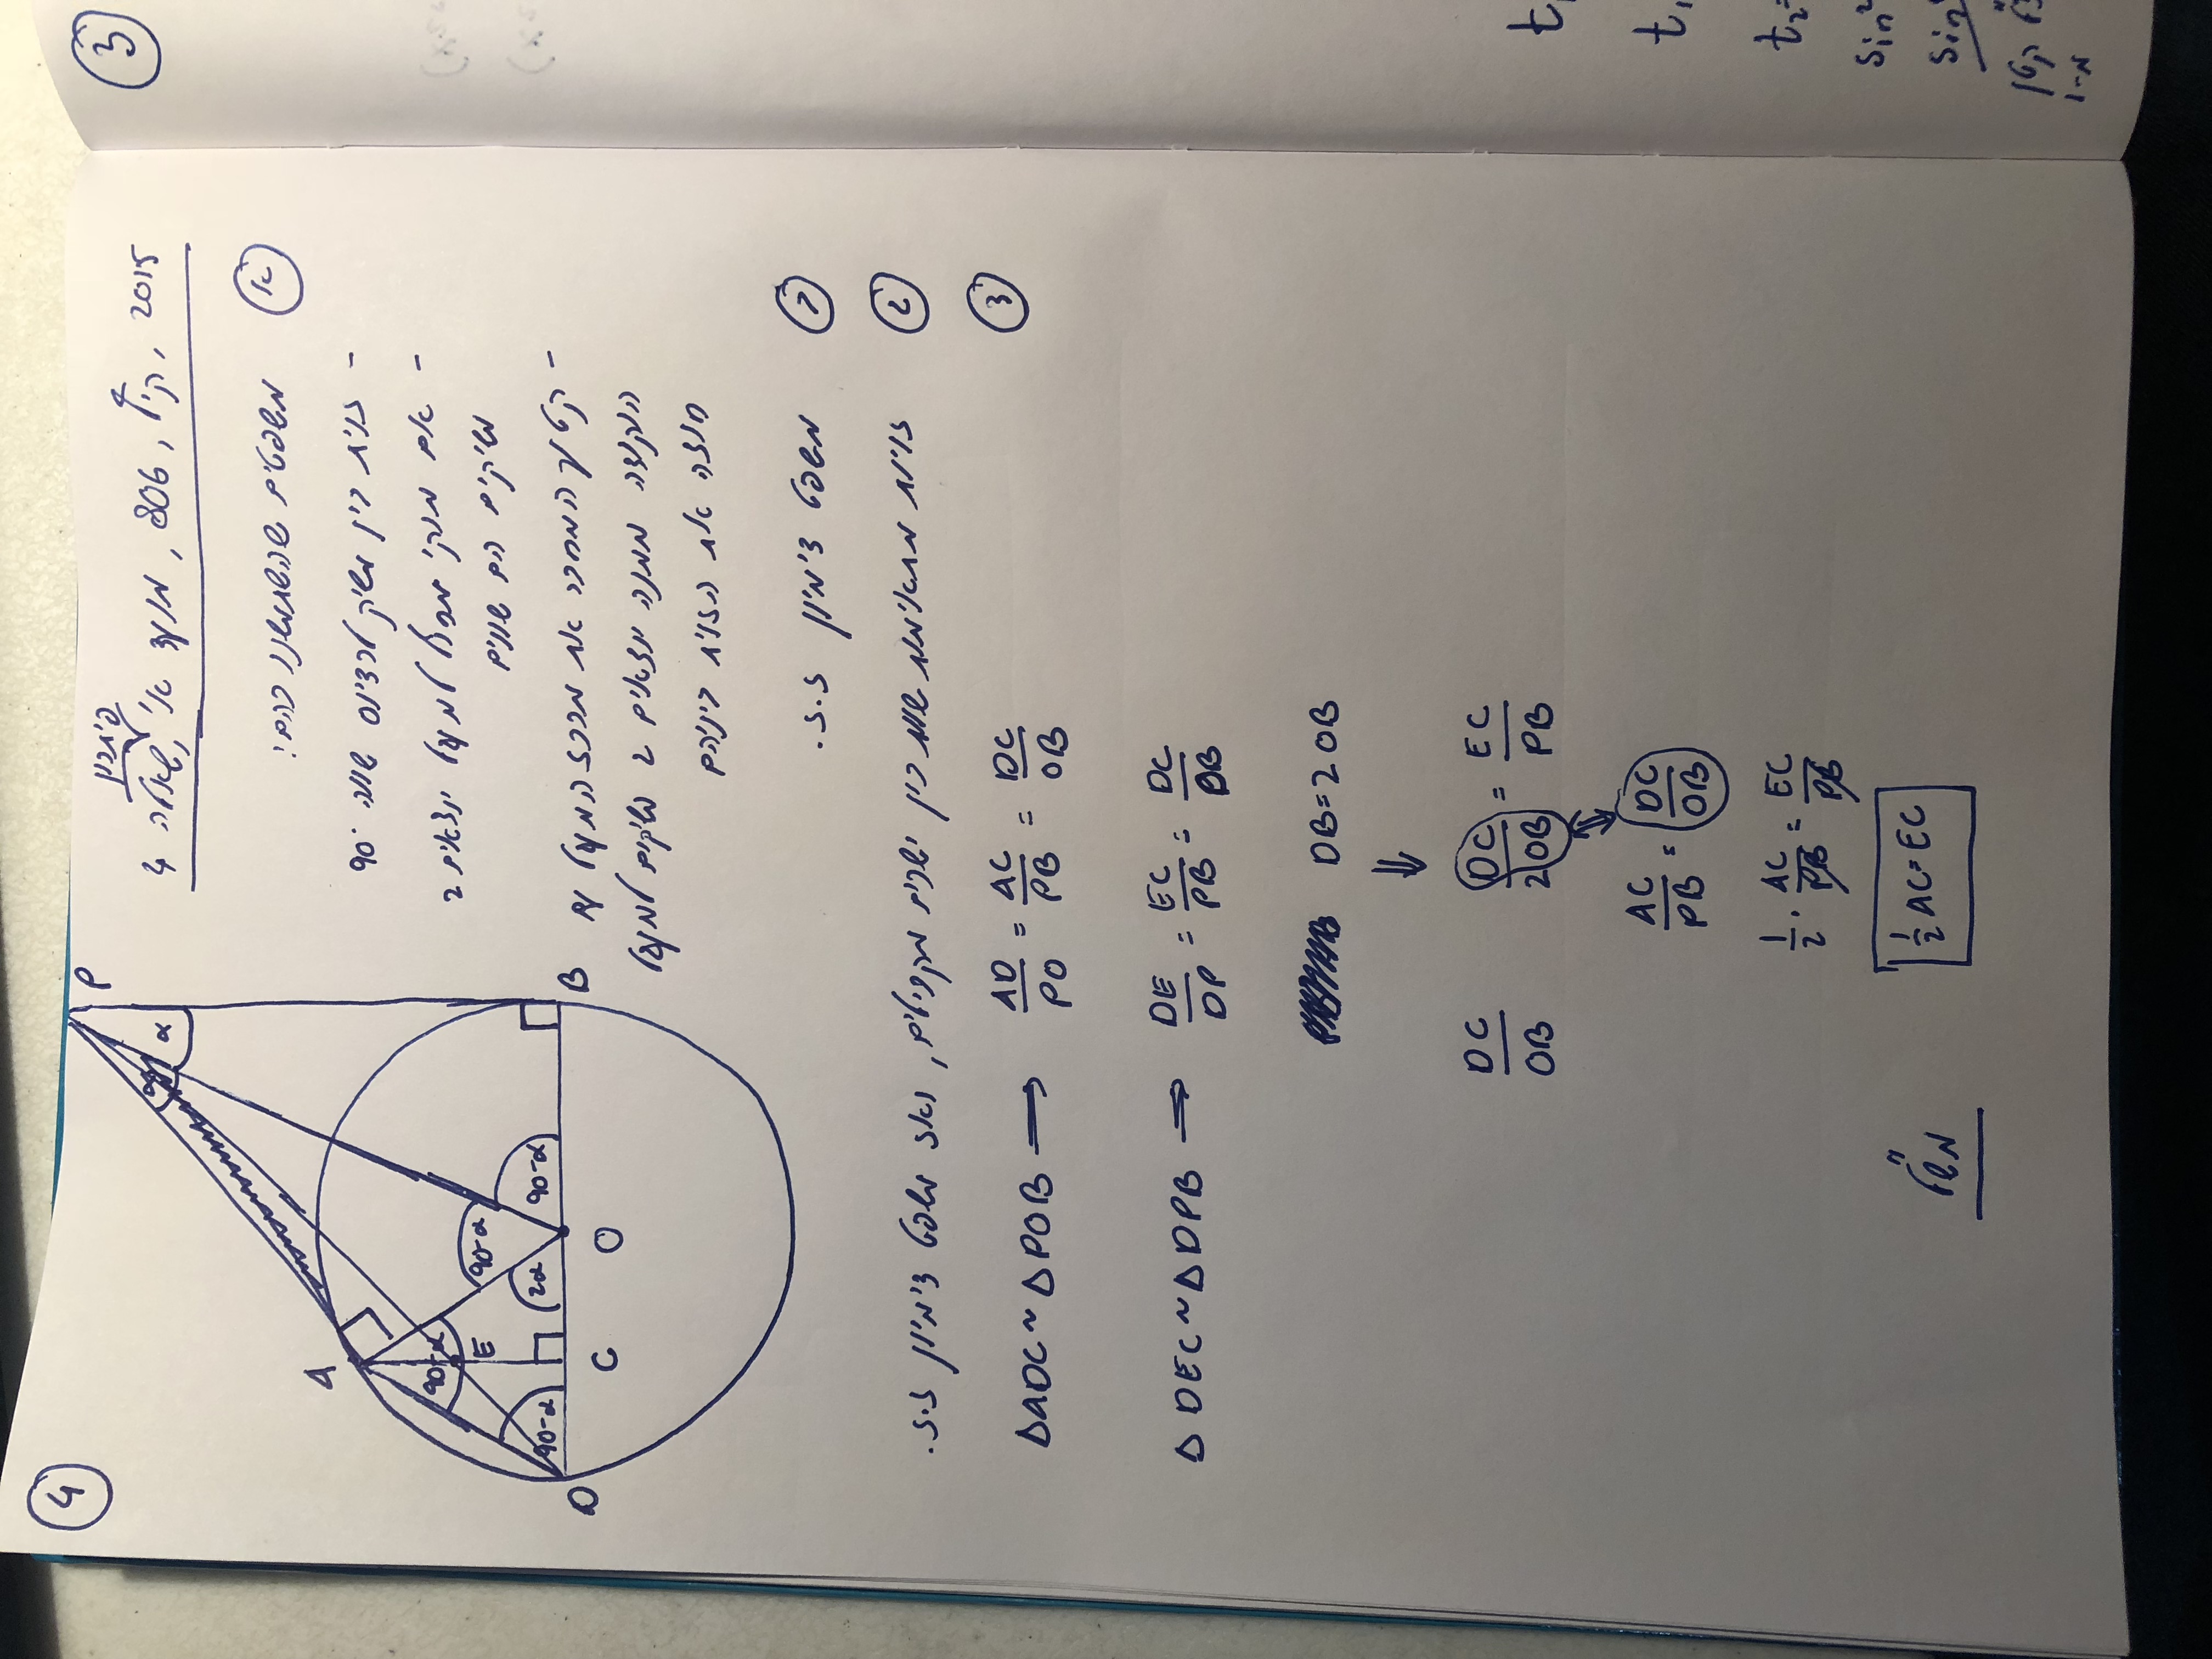 4
פיתרון
2015, קיץ, 806, מועד א', שאלה 4
P
α
α
A
90-α
E
90-α
90-α
2α
90-α
D
C
O
B
א
משפטים שהשתמשנו בהם:
- זוית בין משיק לרדיוס שווה 90°
- אם מנק' מחוץ למעגל יוצאים 2
משיקים הם שווים
- קטע המחבר את מרכז המעגל עם
הנקודה ממנה יוצאים 2 משיקים למעגל
חוצה את הזוית ביניהם
ב
משפט דימיון ז.ז.
ג
זויות מתאימות שוות בין ישרים מקבילים, ואז משפט דימיון ז.ז.
ΔADC ~ ΔPOB ⟹ AD/PO = AC/PB = DC/OB
ΔDEC ~ ΔDPB ⟹ DE/DP = EC/PB = DC/DB
DB = 2OB
⇓
DC/OB DC/2OB = EC/PB
AC/PB = DC/OB
1/2 · AC/PB = EC/PB
1/2 AC = EC
מש"ל
3
t
t
t2=
sin²
sin
קטן
מ-1